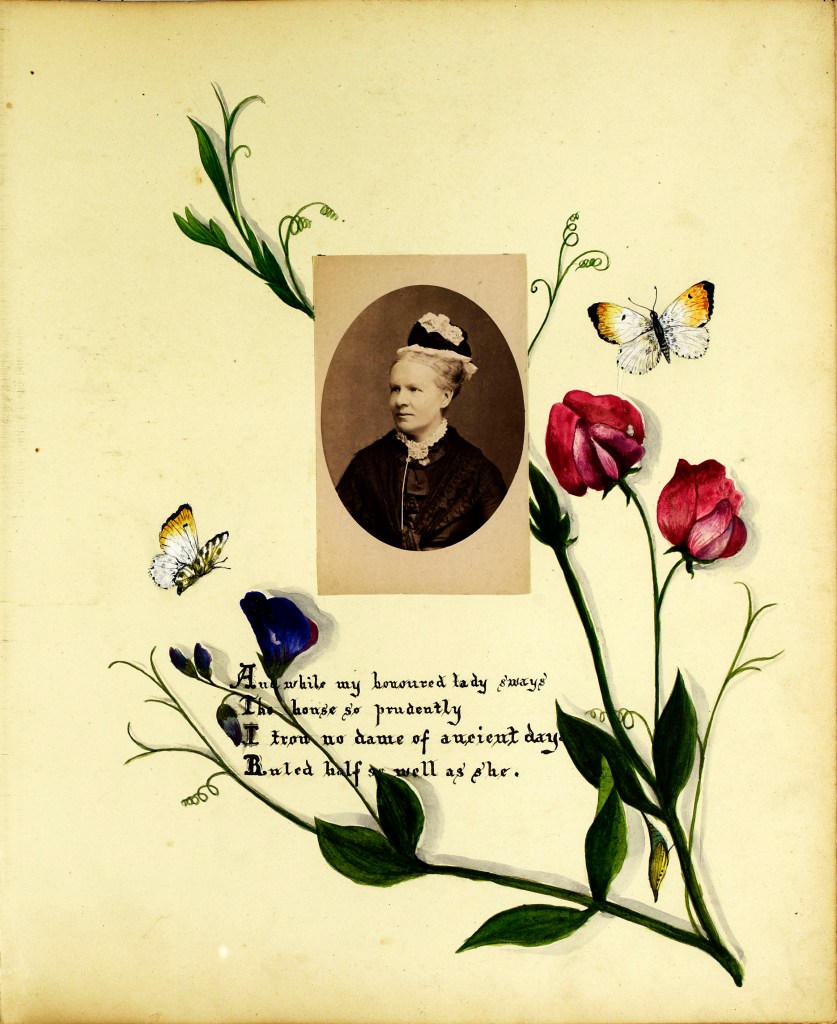 And while my honoured lady sways
The house so prudently
I trow no dame of ancient days
Ruled half so well as she.